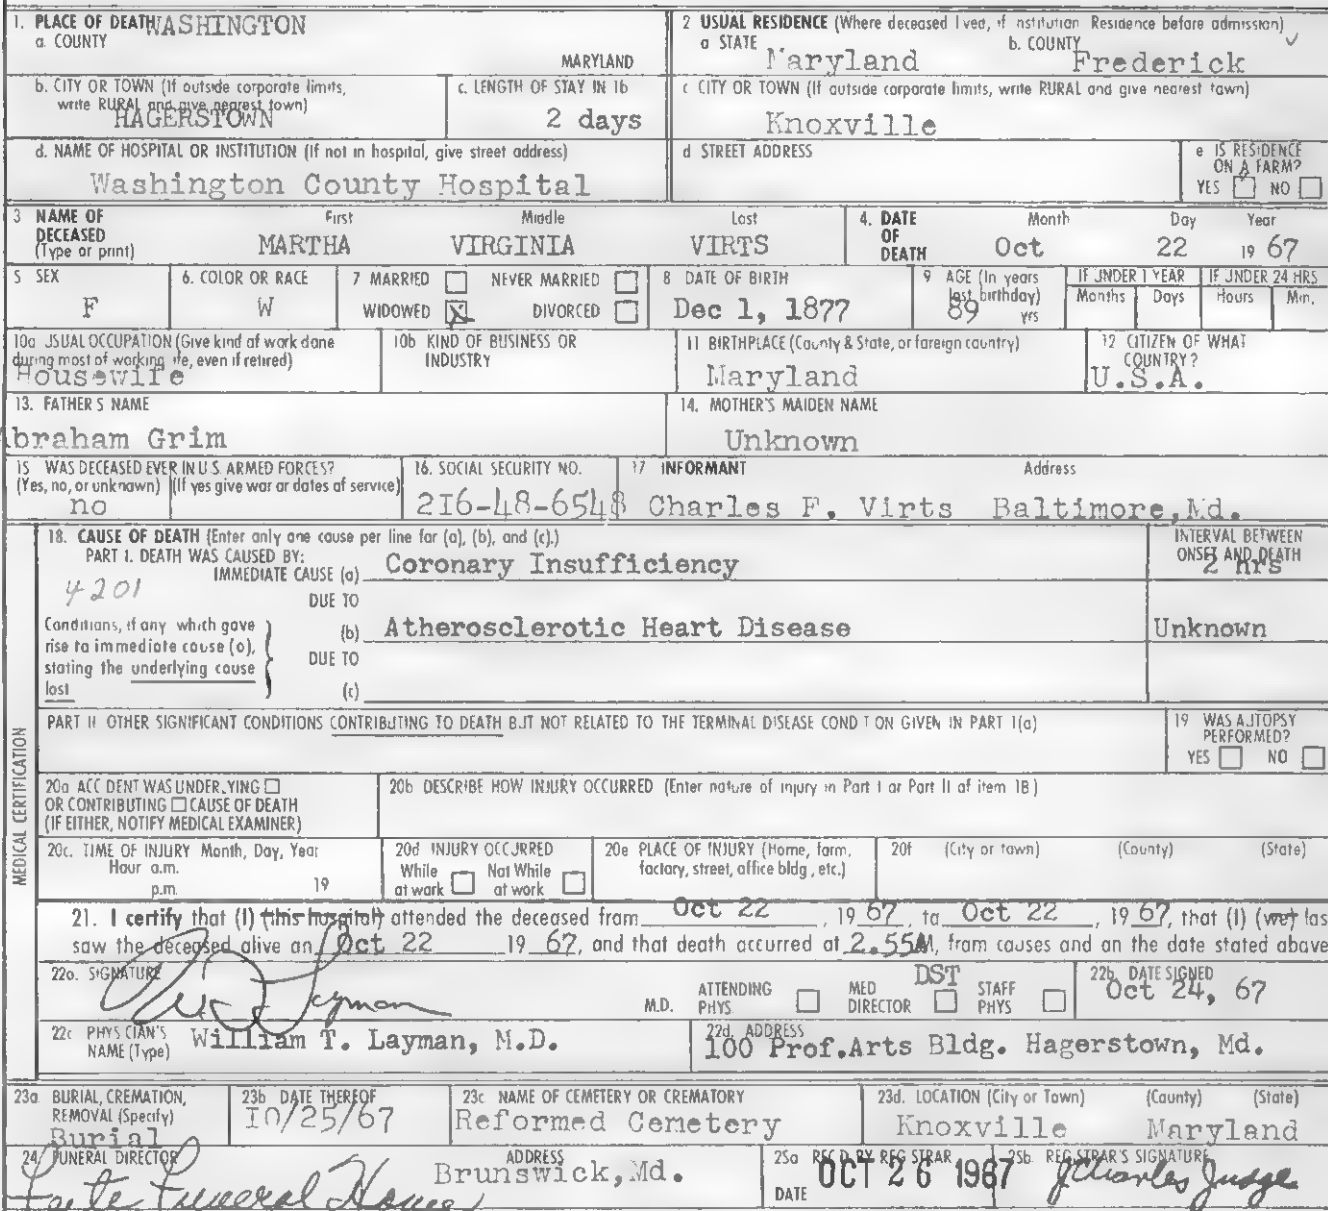 1. PLACE OF DEATH WASHINGTON
a. COUNTY
MARYLAND
2 USUAL RESIDENCE (Where deceased lived, if institution Residence before admission)
a STATE Maryland b. COUNTY Frederick
b. CITY OR TOWN (If outside corporate limits, write RURAL and give nearest town)
HAGERSTOWN
c. LENGTH OF STAY IN 1b
2 days
c CITY OR TOWN (If outside corporate limits, write RURAL and give nearest town)
Knoxville
d. NAME OF HOSPITAL OR INSTITUTION (If not in hospital, give street address)
Washington County Hospital
d STREET ADDRESS
e IS RESIDENCE ON A FARM?
YES NO
3 NAME OF DECEASED (Type or print)
First Middle Last
MARTHA VIRGINIA VIRTS
4. DATE OF DEATH
Month Day Year
Oct 22 19 67
5 SEX
F
6. COLOR OR RACE
W
7 MARRIED NEVER MARRIED
WIDOWED X DIVORCED
8 DATE OF BIRTH
Dec 1, 1877
9 AGE (In years last birthday)
89 yrs
IF UNDER 1 YEAR
Months Days
IF UNDER 24 HRS
Hours Min.
10a USUAL OCCUPATION (Give kind of work done during most of working life, even if retired)
Housewife
10b KIND OF BUSINESS OR INDUSTRY
11 BIRTHPLACE (County & State, or foreign country)
Maryland
12 CITIZEN OF WHAT COUNTRY?
U.S.A.
13. FATHER'S NAME
braham Grim
14. MOTHER'S MAIDEN NAME
Unknown
15 WAS DECEASED EVER IN U.S. ARMED FORCES?
(Yes, no, or unknown) (If yes give war or dates of service)
no
16. SOCIAL SECURITY NO.
216-48-6548
17 INFORMANT Address
Charles F. Virts Baltimore,Md.
18. CAUSE OF DEATH (Enter only one cause per line for (a), (b), and (c).)
PART I. DEATH WAS CAUSED BY:
IMMEDIATE CAUSE (a) Coronary Insufficiency
INTERVAL BETWEEN ONSET AND DEATH
2 hrs
4201
DUE TO
Conditions, if any which gave rise to immediate cause (a), stating the underlying cause last
(b) Atherosclerotic Heart Disease Unknown
DUE TO
(c)
PART II OTHER SIGNIFICANT CONDITIONS CONTRIBUTING TO DEATH BUT NOT RELATED TO THE TERMINAL DISEASE CONDITION GIVEN IN PART I(a)
19 WAS AUTOPSY PERFORMED?
YES NO
MEDICAL CERTIFICATION
20a ACCIDENT WAS UNDERLYING
OR CONTRIBUTING CAUSE OF DEATH
(IF EITHER, NOTIFY MEDICAL EXAMINER)
20b DESCRIBE HOW INJURY OCCURRED (Enter nature of injury in Part I or Part II of item 18)
20c. TIME OF INJURY Month, Day, Year
Hour a.m.
p.m. 19
20d INJURY OCCURRED
While at work Not While at work
20e PLACE OF INJURY (Home, farm, factory, street, office bldg, etc.)
20f (City or town) (County) (State)
21. I certify that (I) (this hospital) attended the deceased from Oct 22, 19 67, to Oct 22, 19 67, that (I) (we) las
saw the deceased alive on Oct 22 19 67, and that death occurred at 2.55AM, from causes and on the date stated above
22a. SIGNATURE
Layman M.D.
ATTENDING PHYS MED DIRECTOR STAFF PHYS
DST
22b. DATE SIGNED
Oct 24, 67
22c PHYSICIAN'S NAME (Type) William T. Layman, M.D.
22d. ADDRESS
100 Prof.Arts Bldg. Hagerstown, Md.
23a BURIAL, CREMATION, REMOVAL (Specify)
Burial
23b DATE THEREOF
10/25/67
23c NAME OF CEMETERY OR CREMATORY
Reformed Cemetery
23d. LOCATION (City or Town) (County) (State)
Knoxville Maryland
24 FUNERAL DIRECTOR ADDRESS
Feete Funeral Home Brunswick,Md.
25a REC'D BY REGISTRAR
DATE OCT 26 1967
25b REGISTRAR'S SIGNATURE
J Charles Judge